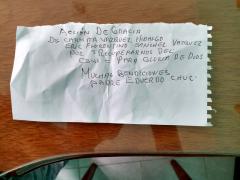 ACCION DE GRACIA
DE CARMITA VAZQUEZ HIDALGO
ERIC FIORENTINO SANCHEZ VAZQUEZ
POR RECUPERARNOS DEL
COVI - PARA GLORIA DE DIOS
MUCHAS BENDICIONES
PADRE EDUARDO "CHUC"